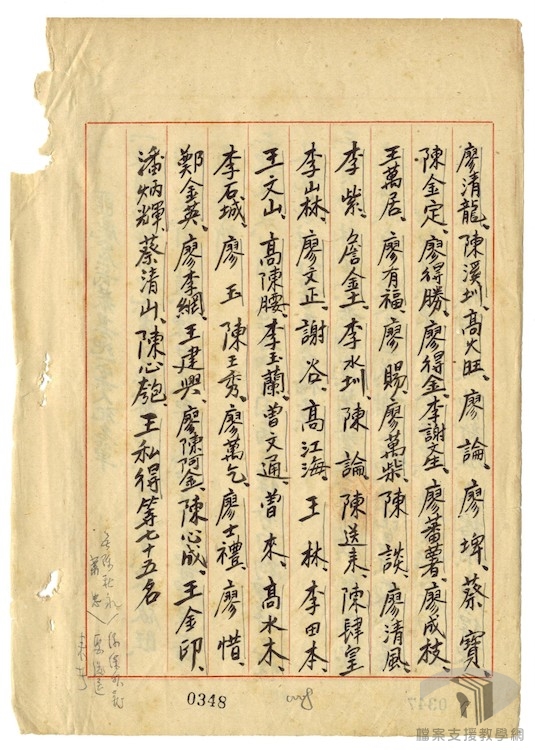 廖清龍、陳溪圳、高火旺、廖論、廖埤、蔡寶、
陳金定、廖得勝、廖得金、李謝文生、廖蕃薯、廖成枝、
王萬居、廖有福、廖賜、廖萬柴、陳談、廖清風、
李紫、詹金土、李水圳、陳論、陳送來、陳肆皇
李山林、廖文正、謝谷、高江海、王林、李田本、
王文山、高陳腰、李玉蘭、曾文通、曾來、高水木、
李石城、廖玉、陳王秀、廖萬乞、廖士禮、廖惜、
鄭金英、廖李綢、王建興、廖陳阿金、陳心成、王金印、
潘炳輝、蔡清山、陳心匏、王私得等七十五名
0348
0347
檔案支援教學網